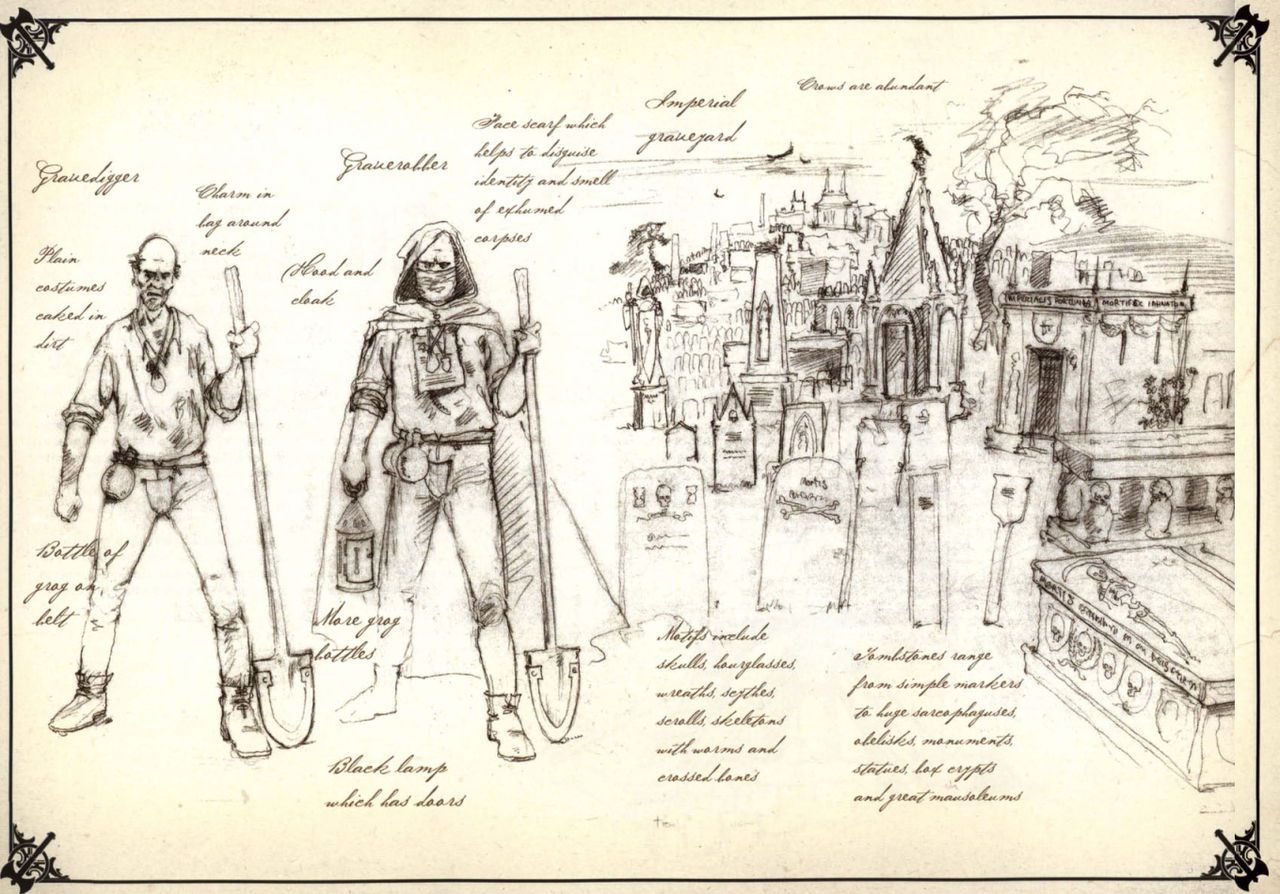 Gravedigger
Charm in
bag around
neck
Plain
costumes
caked in
dirt
Bottle of
grog on
belt
Graverobber
Face scarf which
helps to disguise
identity and smell
of exhumed
corpses
Hood and
cloak
More grog
bottles
Black lamp
which has doors
Imperial
graveyard
Crows are abundant
MORTIFEX
Mortis
MORTIS
Motifs include
skulls, hourglasses,
wreaths, scythes,
scrolls, skeletons
with worms and
crossed bones
Tombstones range
from simple markers
to huge sarcophaguses,
obelisks, monuments,
statues, box crypts
and great mausoleums